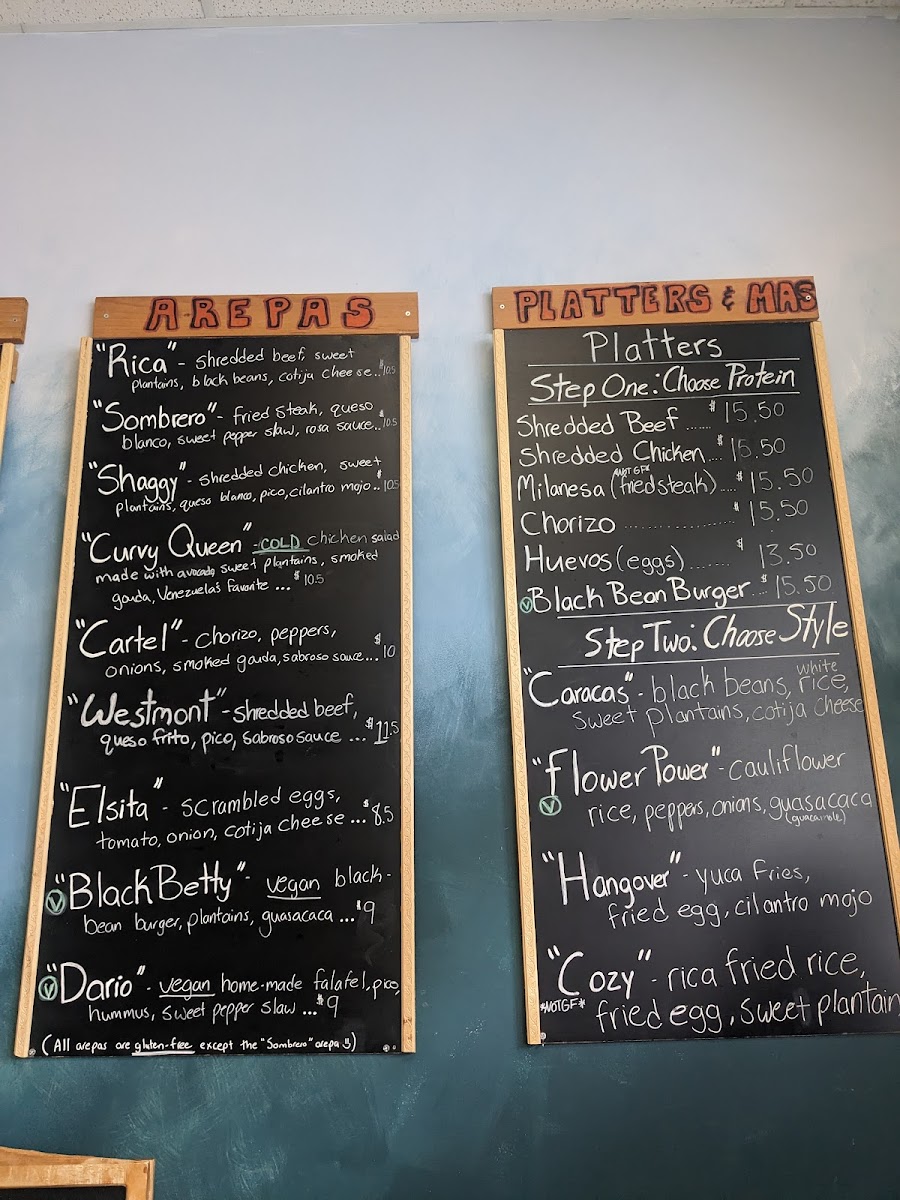 AREPAS
"Rica" - shredded beef, sweet
plantains, black beans, cotija cheese..$10.5
"Sombrero" - fried steak, queso
blanco, sweet pepper slaw, rosa sauce..$10.5
"Shaggy" - shredded chicken, sweet
plantains, queso blanco, pico, cilantro mojo..$10.5
"Curvy Queen" - COLD chicken salad
made with avocado, sweet plantains, smoked
gouda, Venezuela's favorite ... $10.5
"Cartel" - chorizo, peppers,
onions, smoked gouda, sabroso sauce...$10
"Westmont" - shredded beef,
queso frito, pico, sabroso sauce ... $11.5
"Elsita" - scrambled eggs,
tomato, onion, cotija cheese ...$8.5
V "Black Betty" - vegan black-
bean burger, plantains, guasacaca ...$9
V "Dario" - vegan home-made falafel, pico,
hummus, sweet pepper slaw ...$9
(All arepas are gluten-free except the "Sombrero" arepa :))
PLATTERS & MAS
Platters
Step One: Choose Protein
Shredded Beef ...... $15.50
Shredded Chicken... $15.50
*NOT GF*
Milanesa (fried steak)....$15.50
Chorizo ............... $15.50
Huevos (eggs)....... $13.50
V Black Bean Burger .. $15.50
Step Two: Choose Style
"Caracas" - black beans, white rice,
sweet plantains, cotija cheese
"Flower Power" - cauliflower
V rice, peppers, onions, guasacaca
(guacamole)
"Hangover" - yuca fries,
fried egg, cilantro mojo
"Cozy" - rica fried rice,
*NOT GF* fried egg, sweet plantain